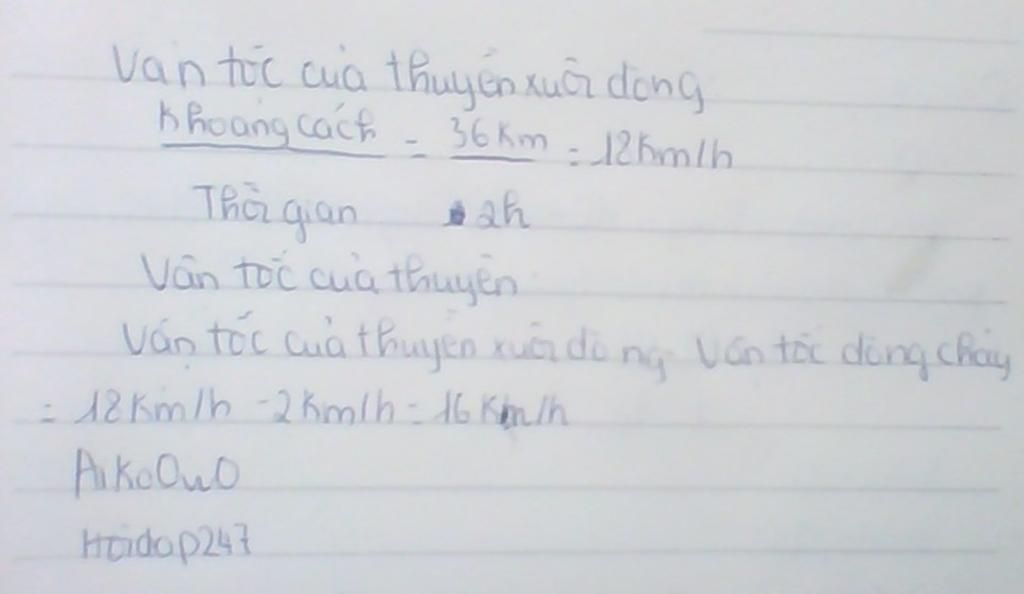 Vận tốc của thuyền xuôi dòng
Khoảng cách = 36 Km = 18Km/h
Thời gian 2h
Vận tốc của thuyền
Vận tốc của thuyền xuôi dòng - Vận tốc dòng chảy
= 18Km/h - 2Km/h = 16Km/h
AikoOwO
Hoidap247